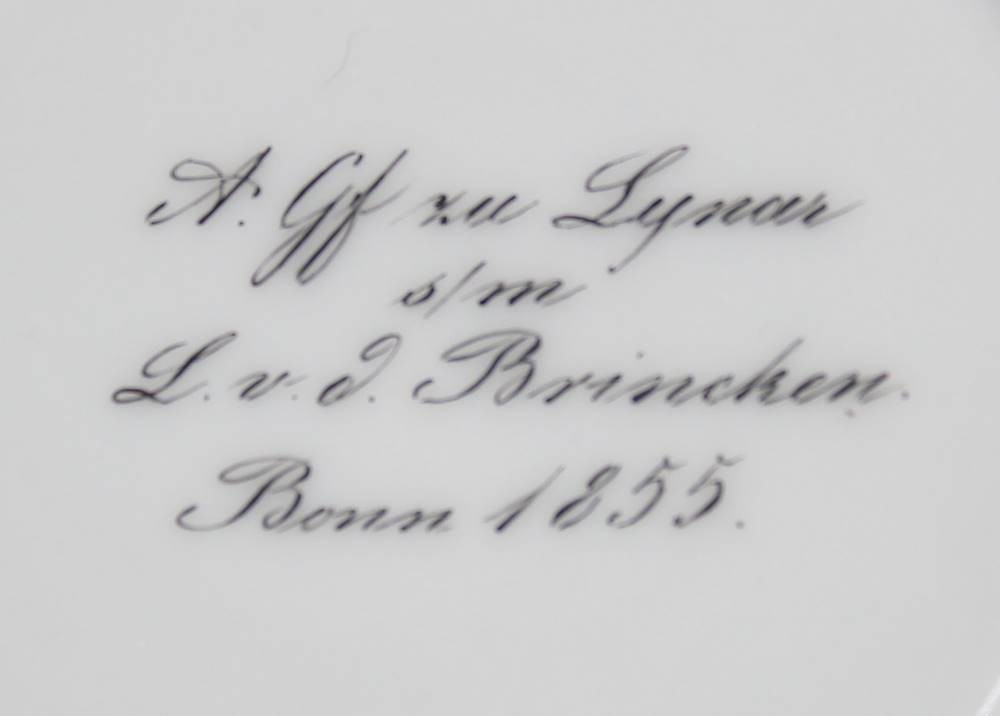 A. Gf zu Lynar
s/m
L. v. d. Brincken.
Bonn 1855.